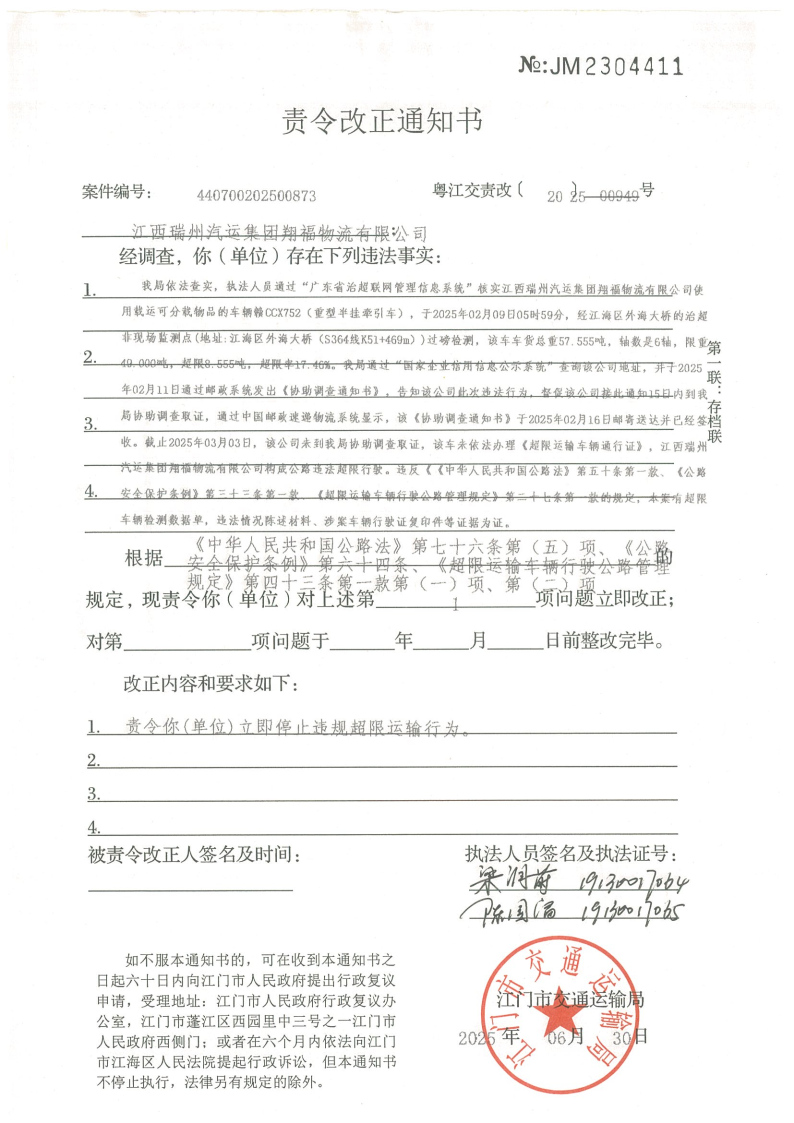 №:JM2304411
责令改正通知书
案件编号: 440700202500873 粤江交责改〔2025〕00949号
江西瑞州汽运集团翔福物流有限公司:
经调查,你(单位)存在下列违法事实:
1. 我局依法查实,执法人员通过“广东省治超联网管理信息系统”核实江西瑞州汽运集团翔福物流有限公司使
用载运可分载物品的车辆赣CCX752(重型半挂牵引车),于2025年02月09日05时59分,经江海区外海大桥的治超
非现场监测点(地址:江海区外海大桥(S364线K51+469m))过磅检测,该车车货总重57.555吨,轴数是6轴,限重
2. 49.000吨,超限8.555吨,超限率17.46%。我局通过“国家企业信用信息公示系统”查询该公司地址,并于2025
年02月11日通过邮政系统发出《协助调查通知书》,告知该公司此次违法行为,督促该公司接此通知15日内到我
3. 局协助调查取证,通过中国邮政速递物流系统显示,该《协助调查通知书》于2025年02月16日邮寄送达并已经签
收。截止2025年03月03日,该公司未到我局协助调查取证,该车未依法办理《超限运输车辆通行证》,江西瑞州
汽运集团翔福物流有限公司构成公路违法超限行驶。违反《《中华人民共和国公路法》第五十条第一款、《公路
4. 安全保护条例》第三十三条第一款、《超限运输车辆行驶公路管理规定》第二十七条第一款的规定,本案有超限
车辆检测数据单,违法情况陈述材料、涉案车辆行驶证复印件等证据为证。
第一联:存档联
根据《中华人民共和国公路法》第七十六条第(五)项、《公路
安全保护条例》第六十四条、《超限运输车辆行驶公路管理
规定》第四十三条第一款第(一)项、第(二)项的
规定,现责令你(单位)对上述第1项问题立即改正;
对第 项问题于 年 月 日前整改完毕。
改正内容和要求如下:
1. 责令你(单位)立即停止违规超限运输行为。
2.
3.
4.
被责令改正人签名及时间:
执法人员签名及执法证号:
19130017064
19130017065
如不服本通知书的,可在收到本通知书之
日起六十日内向江门市人民政府提出行政复议
申请,受理地址:江门市人民政府行政复议办
公室,江门市蓬江区西园里中三号之一江门市
人民政府西侧门;或者在六个月内依法向江门
市江海区人民法院提起行政诉讼,但本通知书
不停止执行,法律另有规定的除外。
江门市交通运输局
江门市交通运输局
2025年06月30日